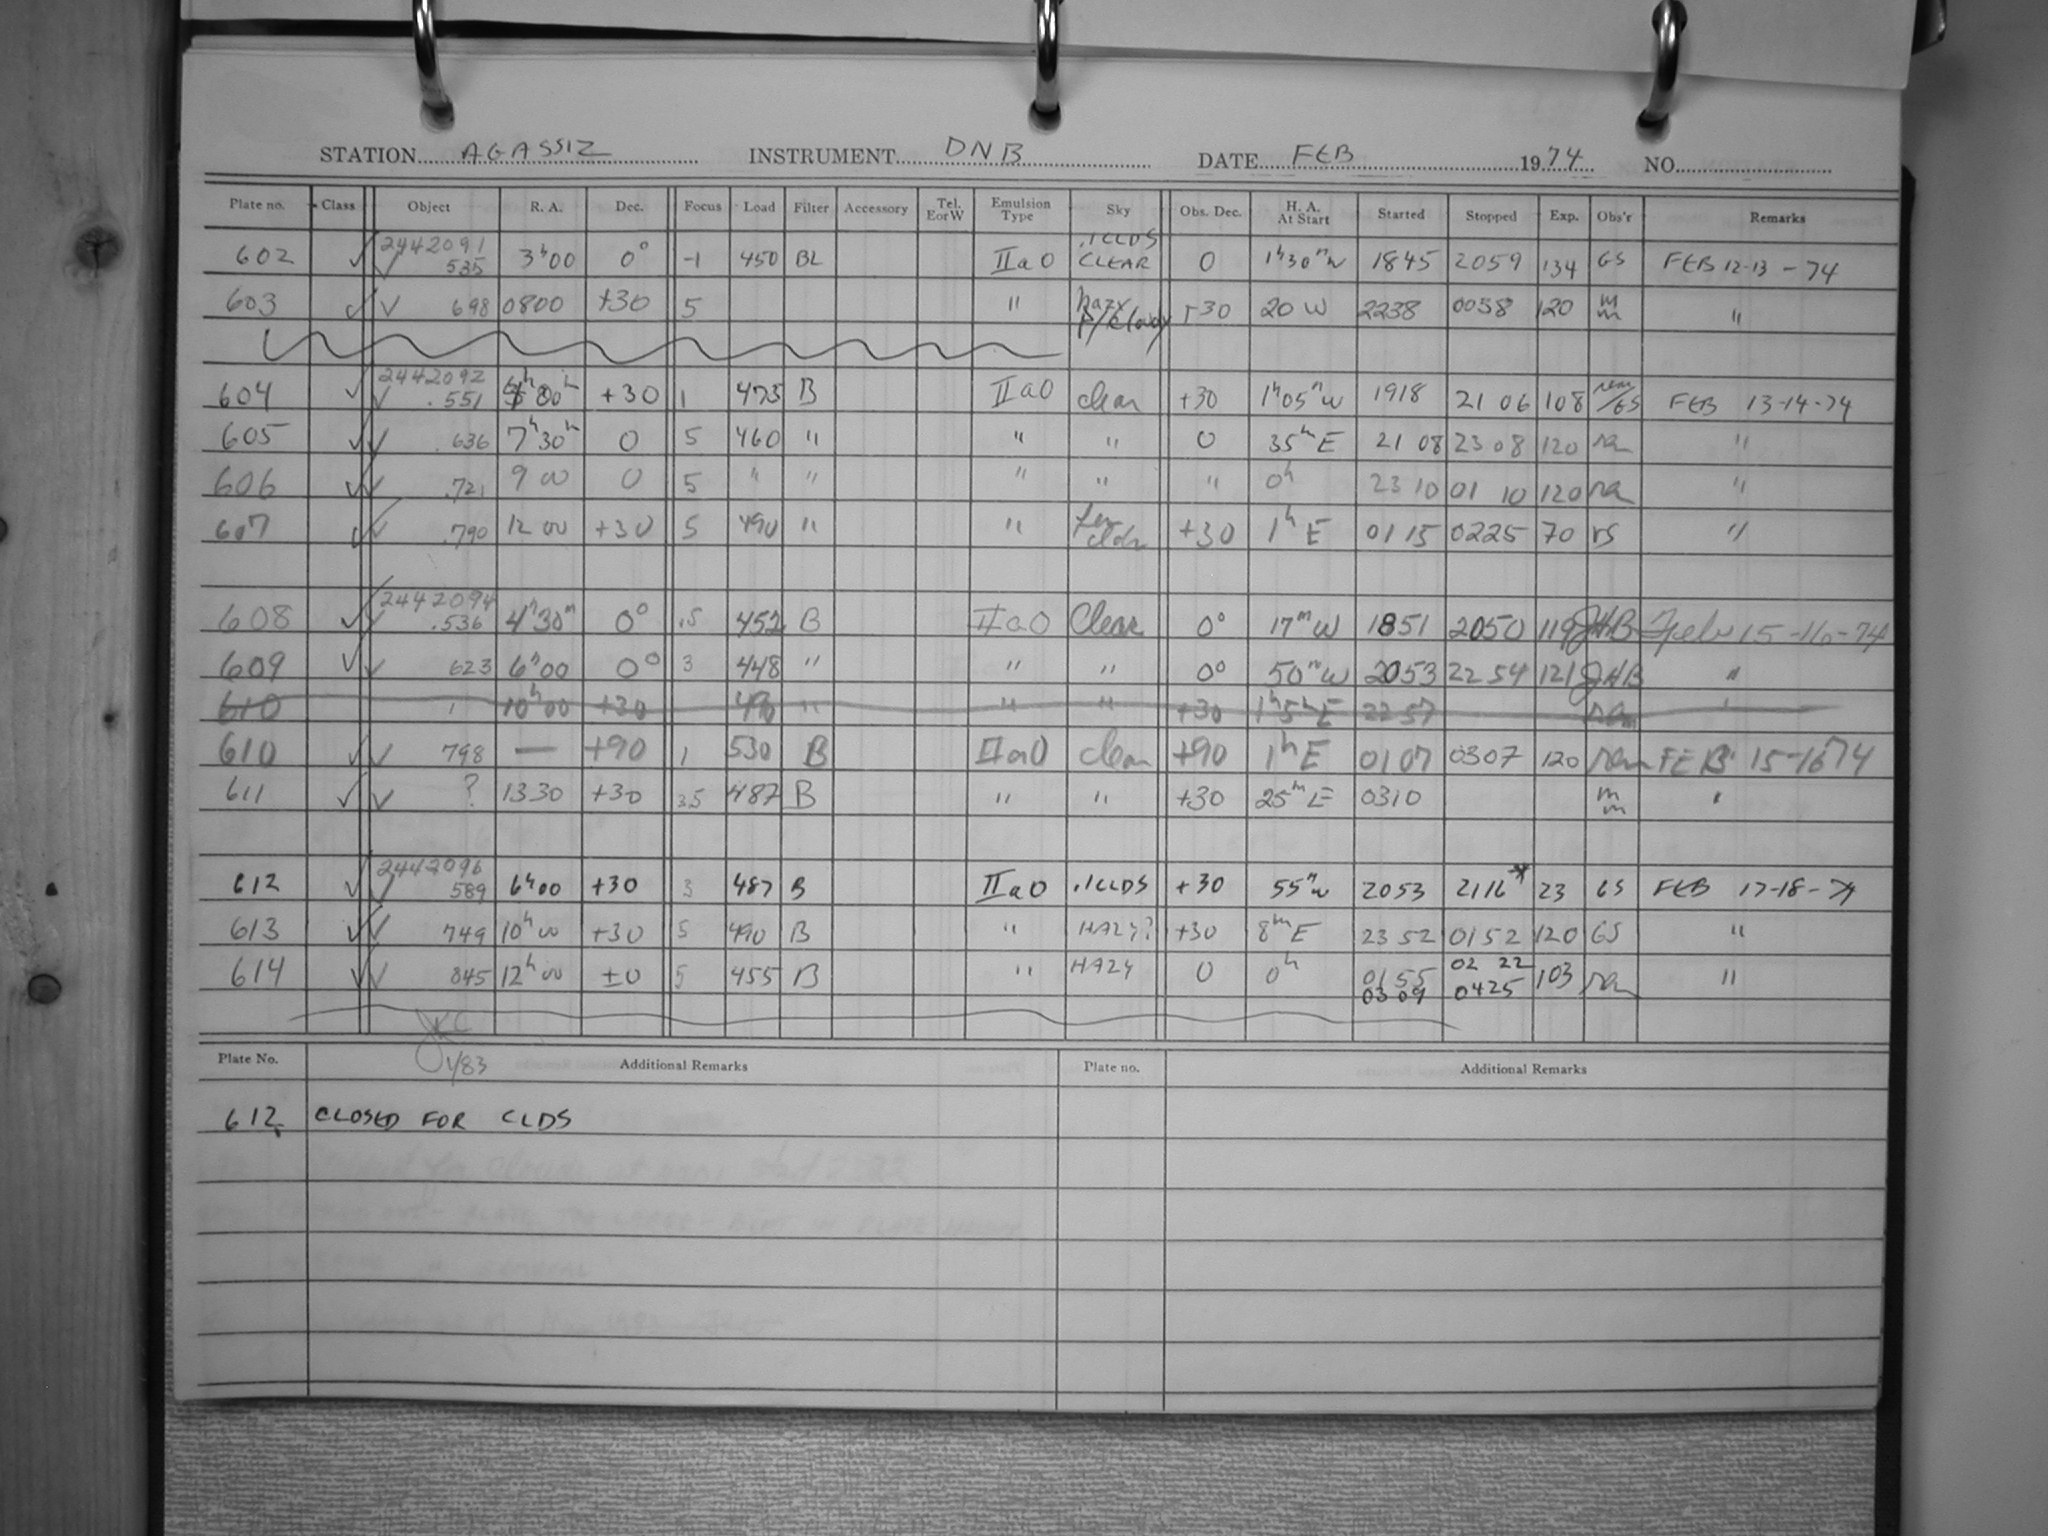 STATION AGASSIZ INSTRUMENT DNB DATE FEB 1974 NO.
Plate no. Class Object R. A. Dec. Focus Load Filter Accessory Tel. E or W Emulsion Type Sky Obs. Dec. H. A. At Start Started Stopped Exp. Obs'r Remarks
602 ✓ 2442091 ✓ 535 3h00 0° -1 450 BL IIaO .1CLDS CLEAR 0 1h30m W 1845 2059 134 GS FEB 12-13-74
603 ✓ ✓ 698 0800 +30 5 " hazy P/Cloudy +30 20 W 2238 0058 120 mm "
604 ✓ 2442092 ✓ .551 00h +30 1 473 B IIaO clear +30 1h05m W 1918 21 06 108 /GS FEB 13-14-74
605 ✓ ✓ .636 7h30h 0 5 460 " " " 0 35m E 21 08 23 08 120 "
606 ✓ ✓ .721 9 00 0 5 " " " " " 0h 23 10 01 10 120 "
607 ✓ ✓ .790 12 00 +30 5 490 " " few clds +30 1h E 01 15 0225 70 rs "
608 ✓ 2442094 ✓ .536 4h30m 0° .5 452 B IIaO Clear 0° 17m W 1851 2050 119 JHB Feb 15-16-74
609 ✓ ✓ 623 6h00 0° 3 448 " " " 0° 50m W 2053 22 54 121 JHB "
610 10h00 +30 490 " " " +30 1h5h E 2257 "
610 ✓ ✓ 798 — +90 1 530 B IIaO clear +90 1h E 0107 0307 120 FEB 15-16 74
611 ✓ ✓ ? 1330 +30 3.5 487 B " " +30 25m E 0310 mm "
612 ✓ 2442096 ✓ 589 6h00 +30 3 487 B IIaO .1CLDS +30 55m W 2053 2116* 23 GS FEB 17-18-74
613 ✓ ✓ 749 10h00 +30 5 490 B " HAZY? +30 8m E 23 52 0152 120 GS "
614 ✓ ✓ 845 12h00 ±0 5 455 B " HAZY 0 0h 0155 02 22 103 "
0309 0425
JKC
1/83
Plate No. Additional Remarks Plate no. Additional Remarks
612 CLOSED FOR CLDS